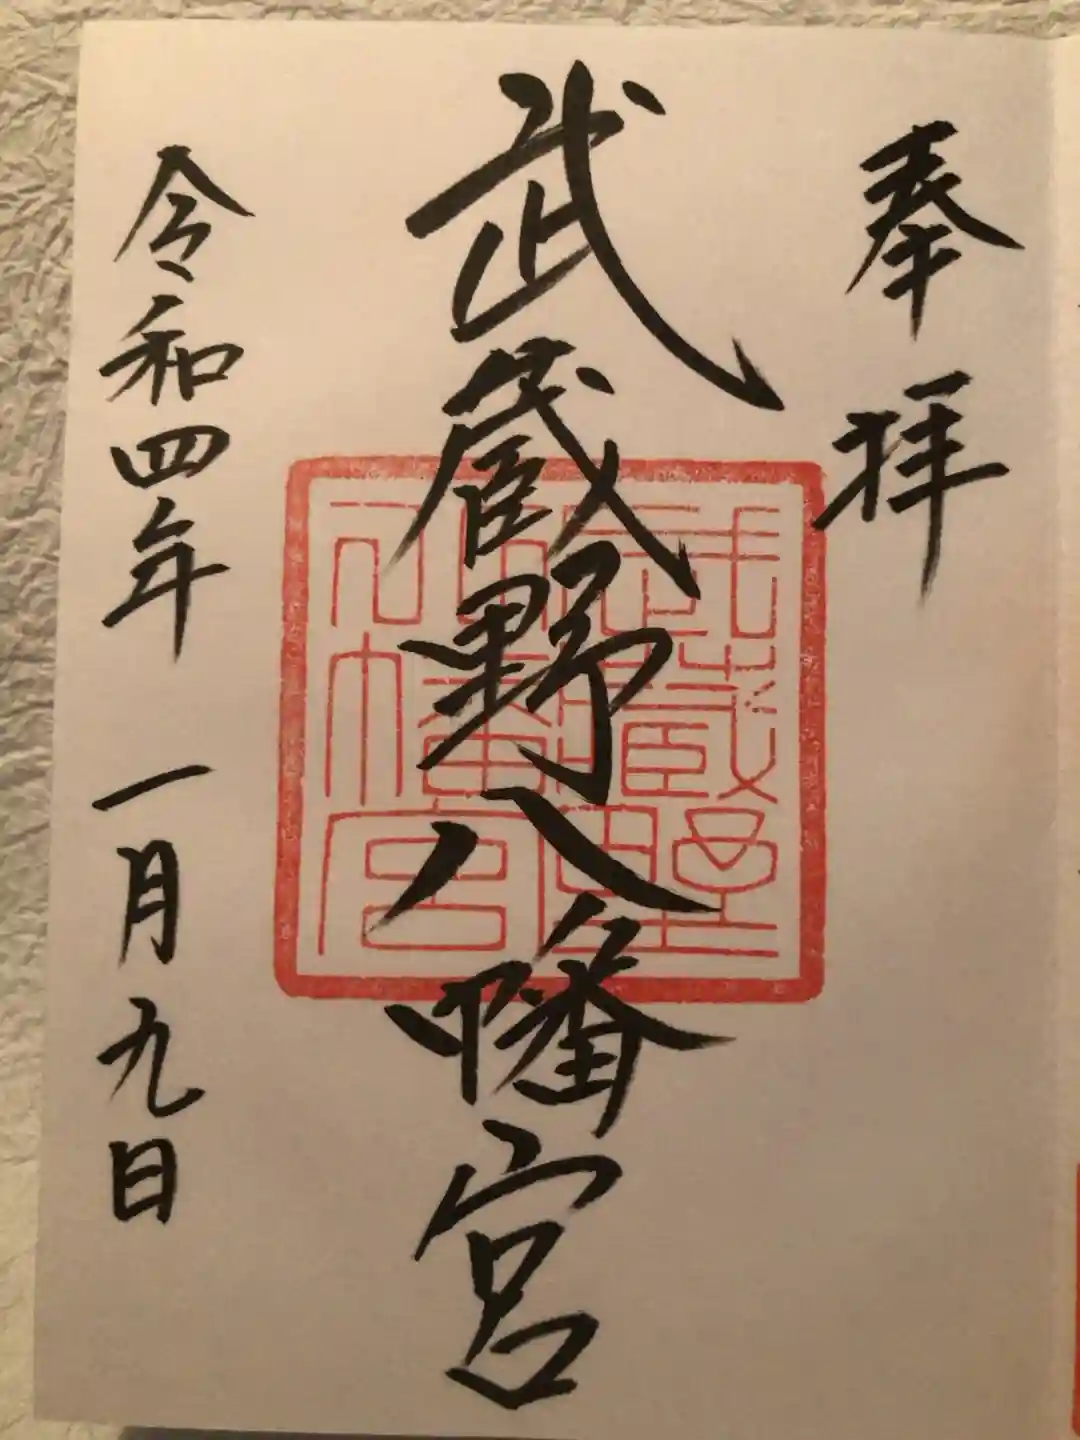 奉拝
武蔵野八幡宮
武蔵野
八幡宮
令和四年 一月九日